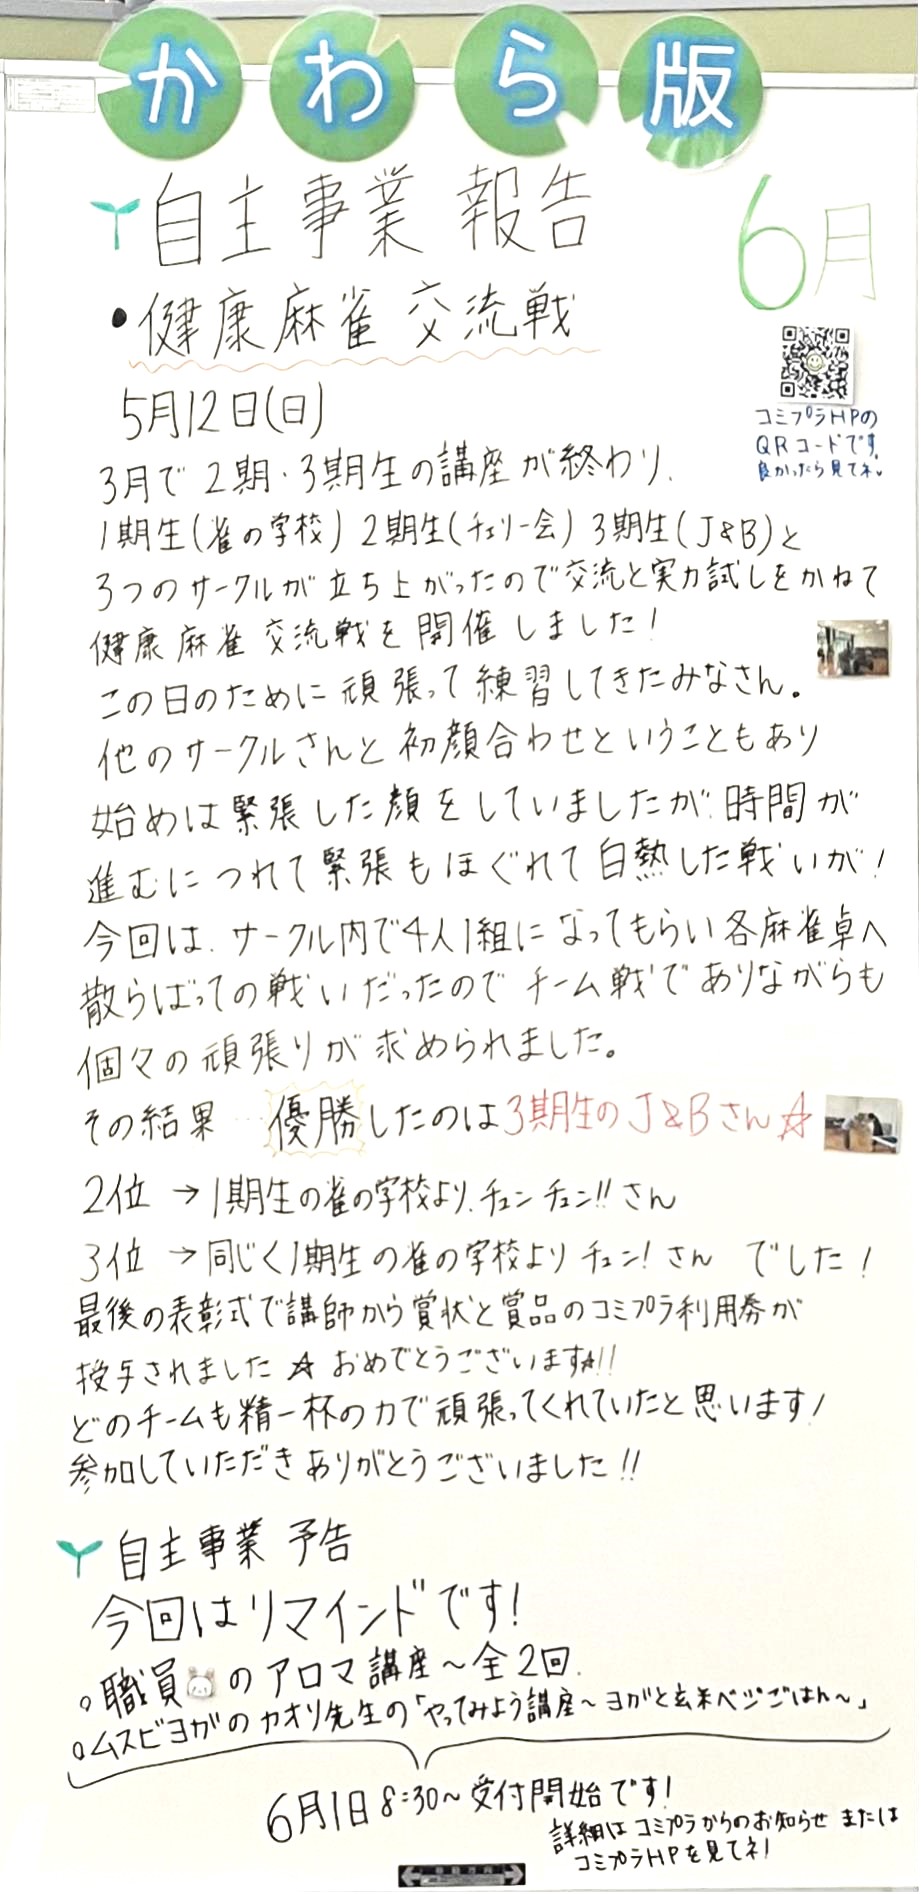 かわら版
自主事業 報告
6月
・健康麻雀 交流戦
コミプラHPの
QRコードです。
良かったら見てネ。
5月12日(日)
3月で 2期・3期生の講座が終わり、
1期生(雀の学校) 2期生(チェリー会) 3期生(J&B)と
3つのサークルが立ち上がったので交流と実力試しをかねて
健康麻雀 交流戦を開催しました!
この日のために頑張って練習してきたみなさん。
他のサークルさんと初顔合わせということもあり
始めは緊張した顔をしていましたが、時間が
進むにつれて緊張もほぐれて白熱した戦いが!
今回は、サークル内で4人1組になってもらい各麻雀卓へ
散らばっての戦いだったのでチーム戦でありながらも
個々の頑張りが求められました。
その結果 … 優勝したのは3期生のJ&Bさん☆
2位 → 1期生の雀の学校より、チュンチュン!!さん
3位 → 同じく1期生の雀の学校よりチュン!さん でした!
最後の表彰式で講師から賞状と賞品のコミプラ利用券が
授与されました☆ おめでとうございます☆!!
どのチームも精一杯の力で頑張ってくれていたと思います!
参加していただきありがとうございました!!
自主事業 予告
今回はリマインドです!
○職員のアロマ講座~全2回
○ムスビヨガのカオリ先生の「やってみよう講座~ヨガと玄米ベジごはん~」
6月1日 8:30~受付開始です!
詳細はコミプラからのお知らせ または
コミプラHPを見てネ!